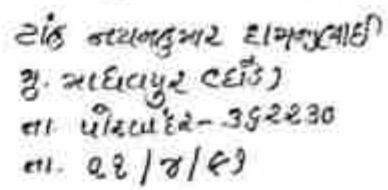 ટાંક નયનકુમાર દામજીભાઈ
મુ. માધવપુર (ઘેડ)
તા. પોરબંદર - ૩૬૨૨૩૦
તા. ૨૧/૪/૯૧